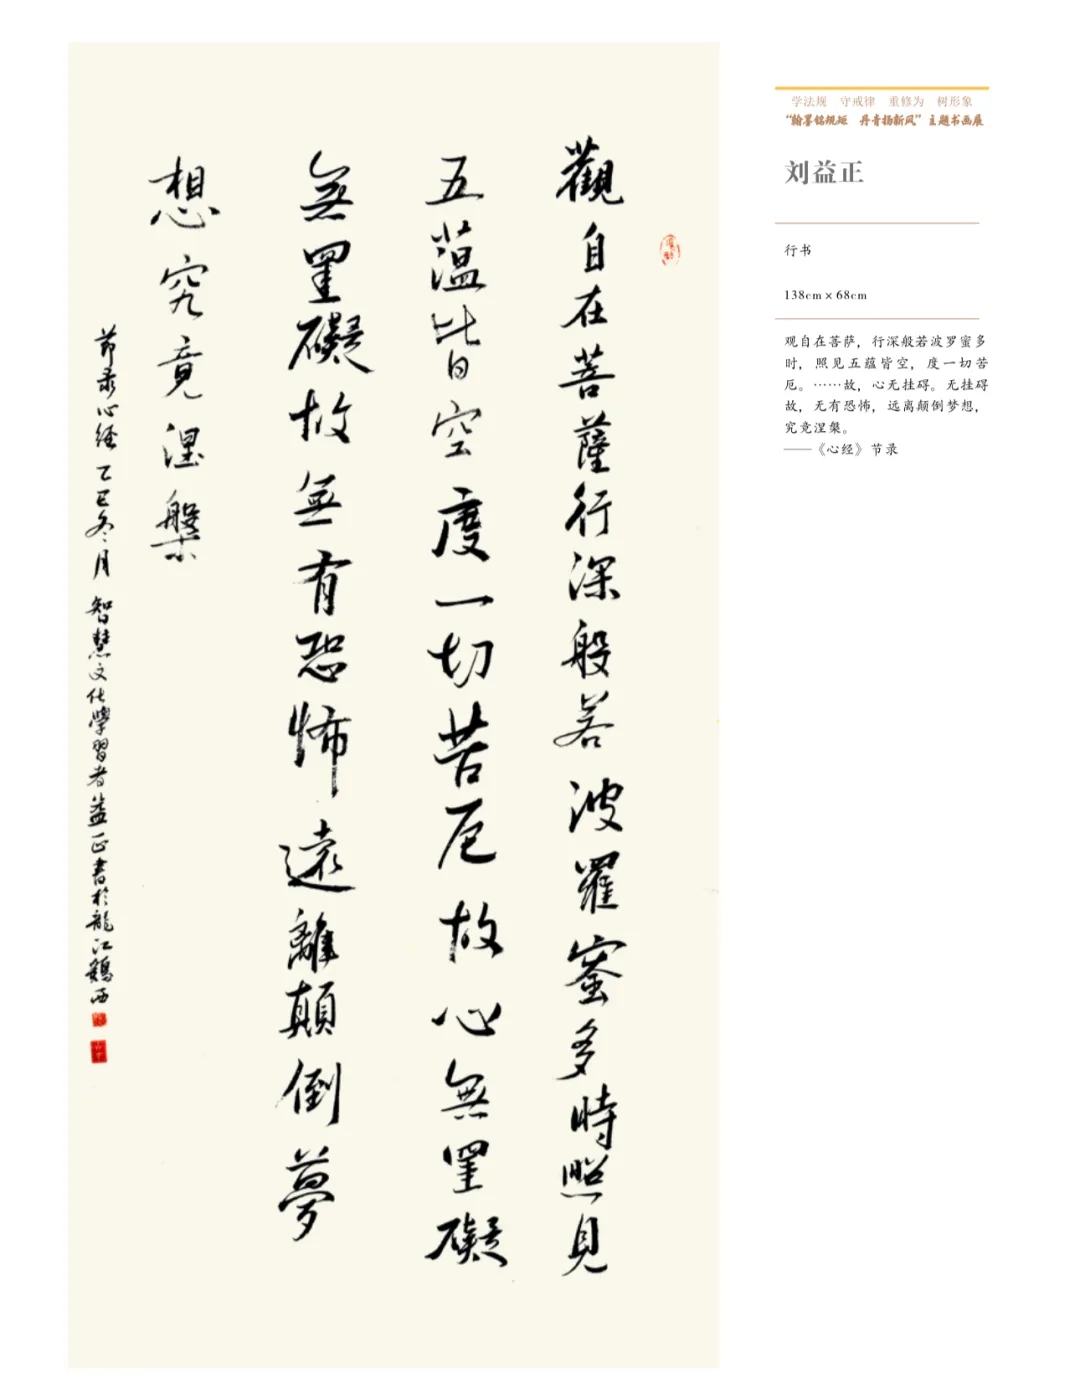 觀自在菩薩行深般若波羅蜜多時照見
五蕴皆空度一切苦厄故心無罣礙
無罣礙故無有恐怖遠離顛倒夢
想究竟涅槃
节录心经乙巳冬月智慧文化學習者益正書於龍江鶴西
学法规 守戒律 重修为 树形象
“翰墨铭规矩 丹青扬新风”主题书画展
刘益正
行书
138cm×68cm
观自在菩萨，行深般若波罗蜜多
时，照见五蕴皆空，度一切苦
厄。……故，心无挂碍。无挂碍
故，无有恐怖，远离颠倒梦想，
究竟涅槃。
——《心经》节录